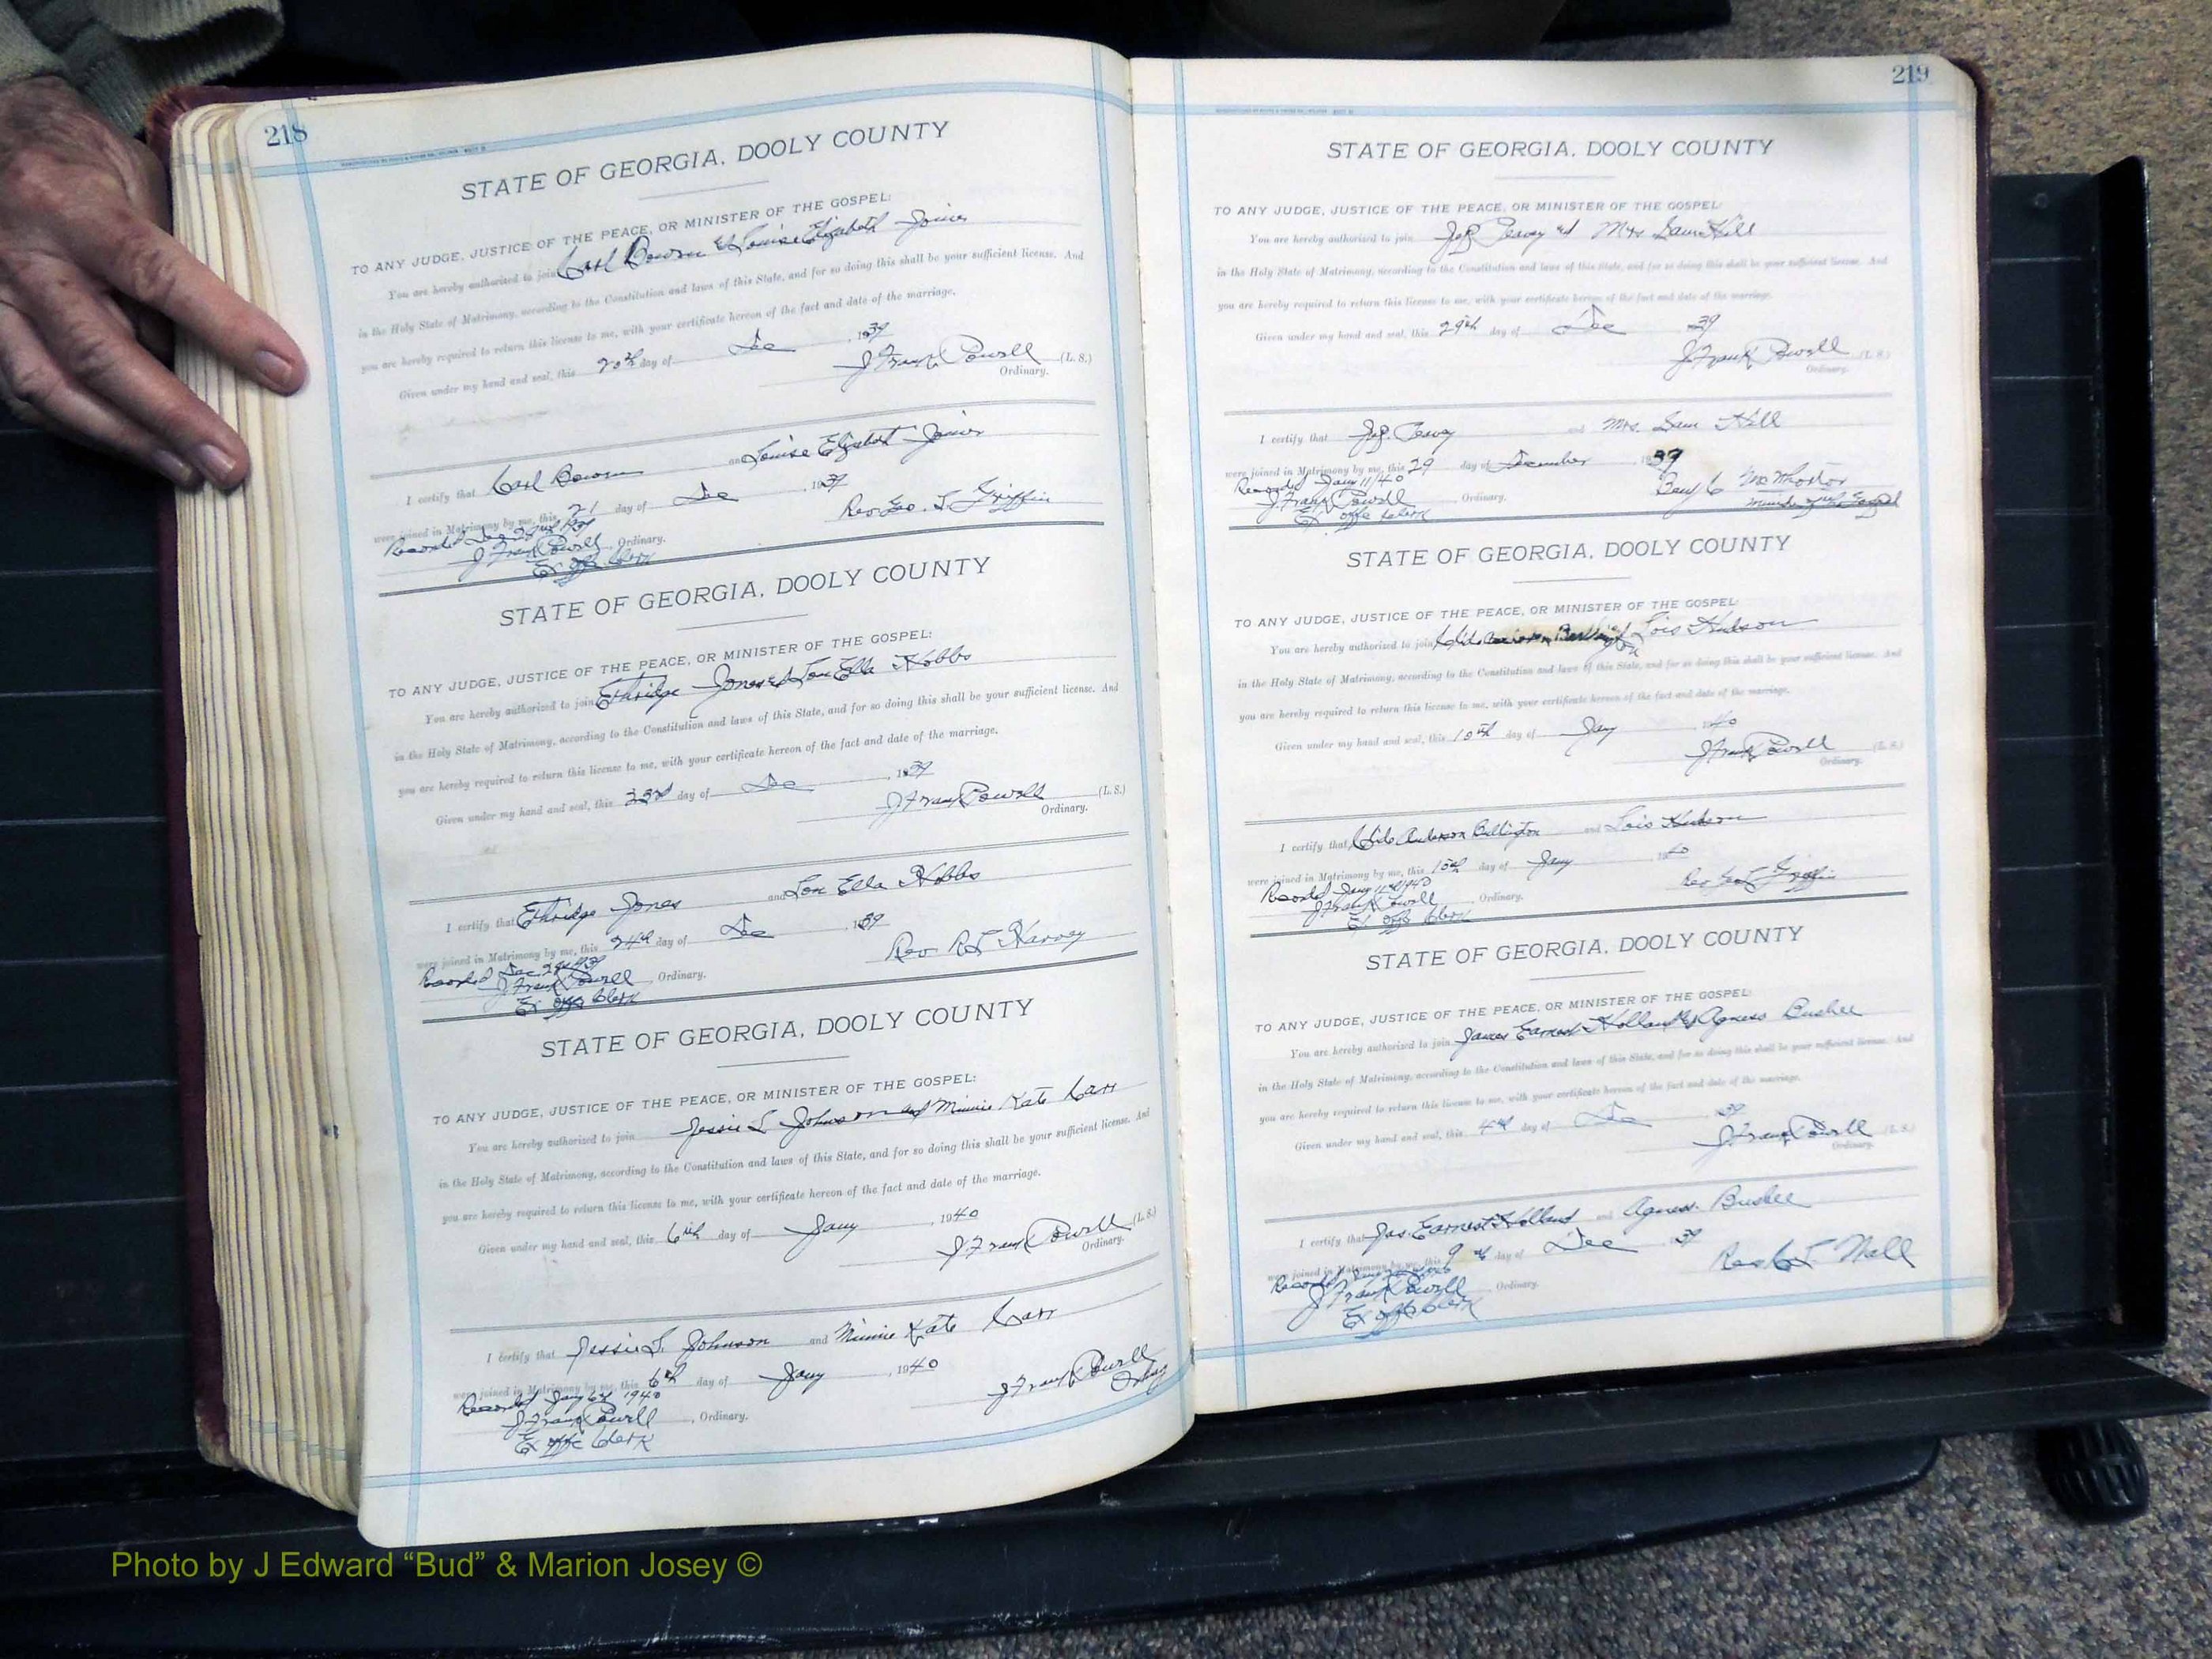 218
STATE OF GEORGIA, DOOLY COUNTY
TO ANY JUDGE, JUSTICE OF THE PEACE, OR MINISTER OF THE GOSPEL:
You are hereby authorized to join Carl Bowen & Louise Elizabeth Joiner
in the Holy State of Matrimony, according to the Constitution and laws of this State, and for so doing this shall be your sufficient license. And
you are hereby required to return this license to me, with your certificate hereon of the fact and date of the marriage.
Given under my hand and seal, this 20th day of Dec , 1939
J. Frank Powell (L. S.)
Ordinary.
I certify that Carl Bowen and Louise Elizabeth Joiner
were joined in Matrimony by me, this 21 day of Dec , 1939
Recorded Dec Rev. Geo. T. Griffin
J. Frank Powell , Ordinary.
Ex offc Clerk
STATE OF GEORGIA, DOOLY COUNTY
TO ANY JUDGE, JUSTICE OF THE PEACE, OR MINISTER OF THE GOSPEL:
You are hereby authorized to join Ethridge Jones & Lou Ella Hobbs
in the Holy State of Matrimony, according to the Constitution and laws of this State, and for so doing this shall be your sufficient license. And
you are hereby required to return this license to me, with your certificate hereon of the fact and date of the marriage.
Given under my hand and seal, this 23rd day of Dec , 1939
J. Frank Powell (L. S.)
Ordinary.
I certify that Ethridge Jones and Lou Ella Hobbs
were joined in Matrimony by me, this 24th day of Dec , 1939
Recorded Dec. Rev. R. L. Harvey
J. Frank Powell , Ordinary.
Ex offc Clerk
STATE OF GEORGIA, DOOLY COUNTY
TO ANY JUDGE, JUSTICE OF THE PEACE, OR MINISTER OF THE GOSPEL:
You are hereby authorized to join Jessie L Johnson and Minnie Kate Carr
in the Holy State of Matrimony, according to the Constitution and laws of this State, and for so doing this shall be your sufficient license. And
you are hereby required to return this license to me, with your certificate hereon of the fact and date of the marriage.
Given under my hand and seal, this 6th day of Jany , 1940
J. Frank Powell (L. S.)
Ordinary.
I certify that Jessie L. Johnson and Minnie Kate Carr
were joined in Matrimony by me, this 6th day of Jany , 1940
Recorded Jany 6th 1940 J Frank Powell
J. Frank Powell , Ordinary.
Ex offc Clerk
219
STATE OF GEORGIA, DOOLY COUNTY
TO ANY JUDGE, JUSTICE OF THE PEACE, OR MINISTER OF THE GOSPEL:
You are hereby authorized to join Peavy and Mrs Sam Hill
in the Holy State of Matrimony, according to the Constitution and laws of this State, and for so doing this shall be your sufficient license. And
you are hereby required to return this license to me, with your certificate hereon of the fact and date of the marriage.
Given under my hand and seal, this 29th day of Dec 39
J. Frank Powell (L. S.)
Ordinary.
I certify that Peavy and Mrs. Sam Hill
were joined in Matrimony by me, this 29 day of December 1939
Recorded Jany 11/40 Benj C McWhorter
J. Frank Powell , Ordinary. minister of Gospel
Ex offc Clerk
STATE OF GEORGIA, DOOLY COUNTY
TO ANY JUDGE, JUSTICE OF THE PEACE, OR MINISTER OF THE GOSPEL:
You are hereby authorized to join Lois Hudson
in the Holy State of Matrimony, according to the Constitution and laws of this State, and for so doing this shall be your sufficient license. And
you are hereby required to return this license to me, with your certificate hereon of the fact and date of the marriage.
Given under my hand and seal, this 10th day of Jany 1940
J Frank Powell (L. S.)
Ordinary.
I certify that Anderson Billington and Lois Hudson
were joined in Matrimony by me, this 10th day of Jany 1940
Recorded Jany 11th 1940 Rev Geo T Griffin
J Frank Powell , Ordinary.
Ex offc Clerk
STATE OF GEORGIA, DOOLY COUNTY
TO ANY JUDGE, JUSTICE OF THE PEACE, OR MINISTER OF THE GOSPEL:
You are hereby authorized to join James Earnest Holland & Agness Busbee
in the Holy State of Matrimony, according to the Constitution and laws of this State, and for so doing this shall be your sufficient license. And
you are hereby required to return this license to me, with your certificate hereon of the fact and date of the marriage.
Given under my hand and seal, this 4th day of Dec 39
J. Frank Powell (L. S.)
Ordinary.
I certify that Jas. Earnest Holland and Agness Busbee
were joined in Matrimony by me, this 9th day of Dec 39
Recorded Jany Rev. Nall
J Frank Powell , Ordinary.
Ex offc Clerk
Photo by J Edward “Bud” & Marion Josey ©